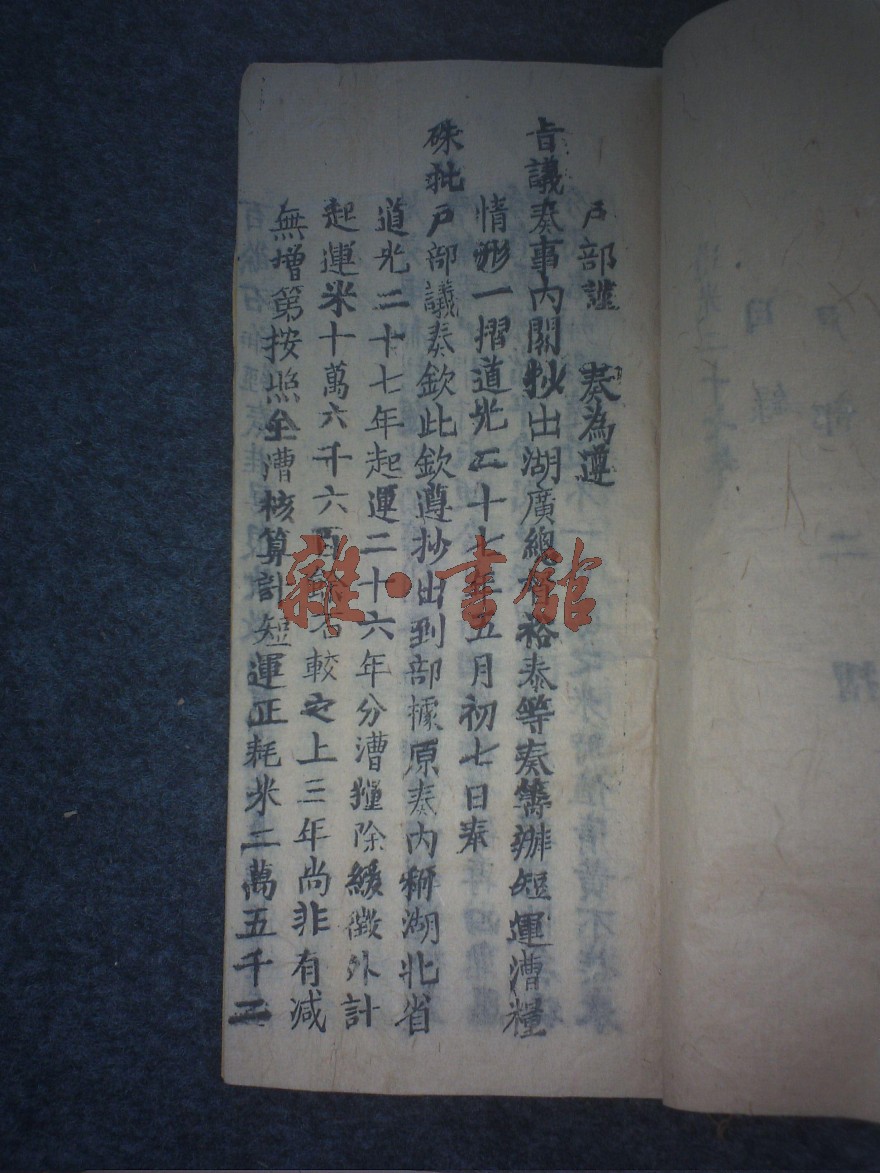 戶部謹 奏為遵
旨議奏事內閣抄出湖廣總督裕泰等奏籌辦短運漕糧
情形一摺道光二十七年五月初七日奉
硃批戶部議奏欽此欽遵抄出到部據原奏內稱湖北省
道光二十七年起運二十六年分漕糧除緩徵外計
起運米十萬六千六百餘石較之上三年尚非有減
無增第按照全漕核算計短運正耗米二萬五千二
雜·書館
戶部二摺
目錄
道光二十七年